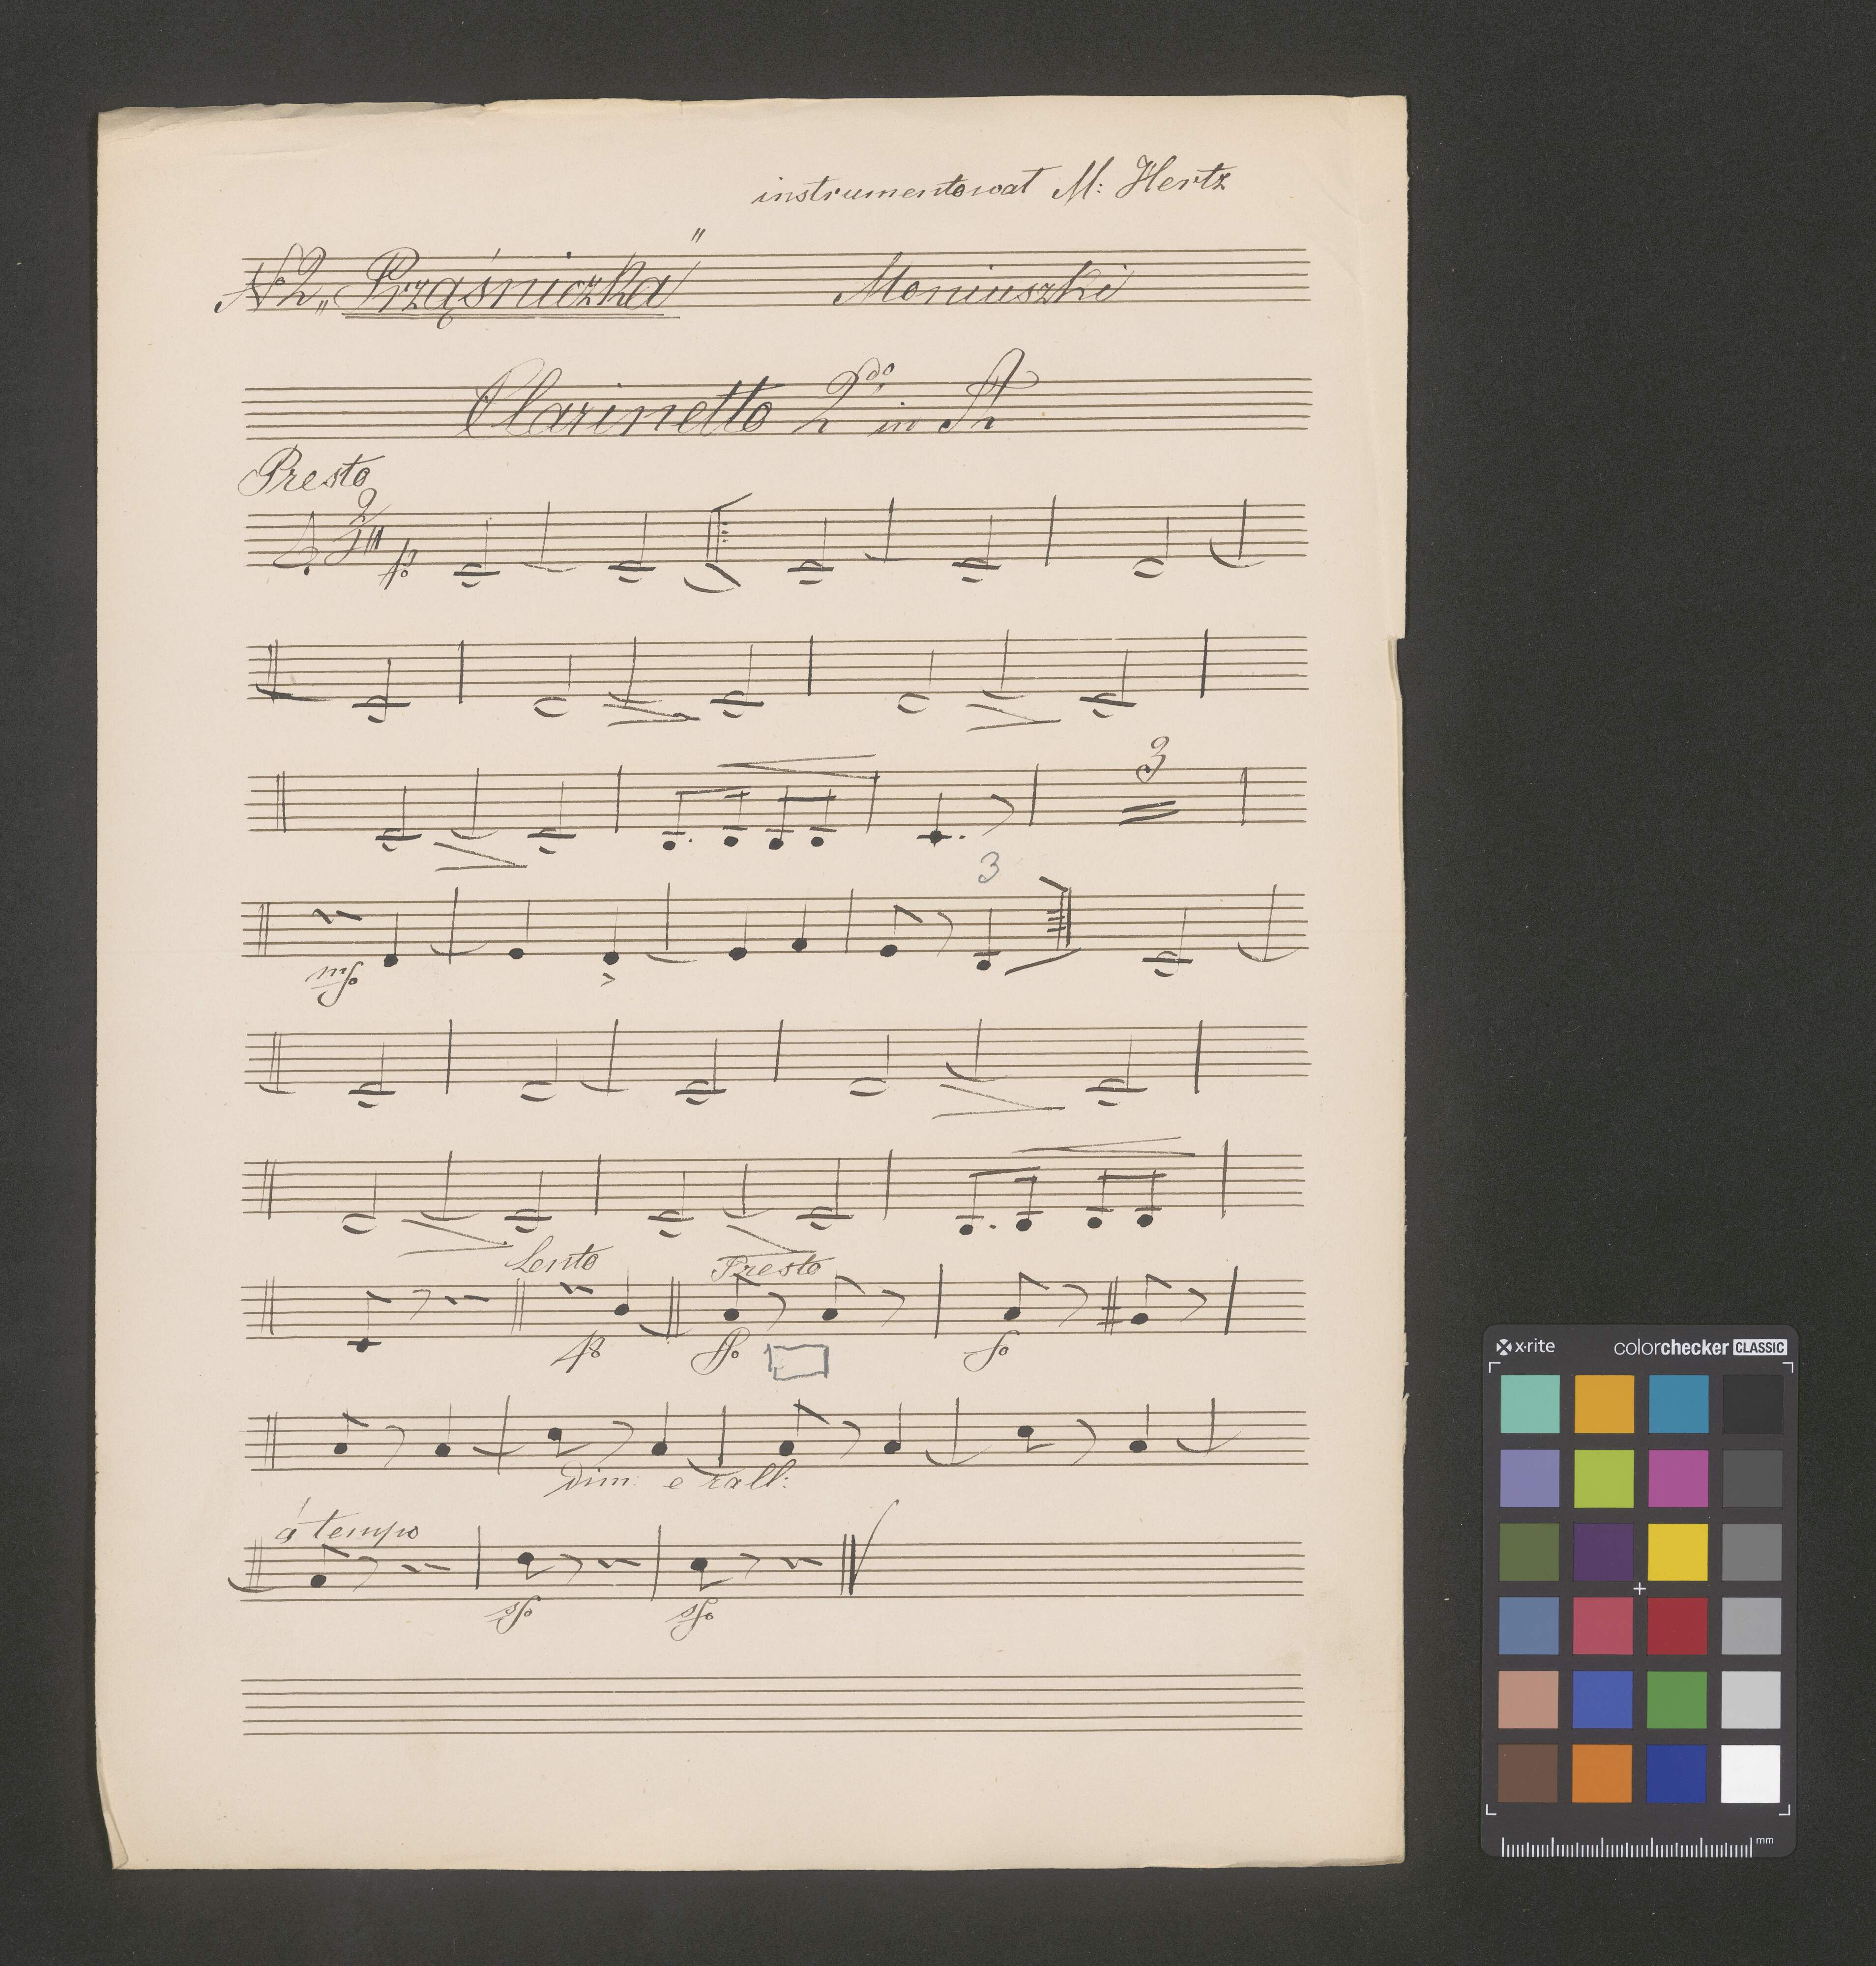 instrumentował M: Hertz
№ 2 „Prząśniczka" Moniuszki
Clarinetto 2do in A
Presto
2/4 p
3
3
mf
Lento Presto
p ff f
dim: e rall:
a tempo
sf sf
x·rite colorchecker CLASSIC
mm